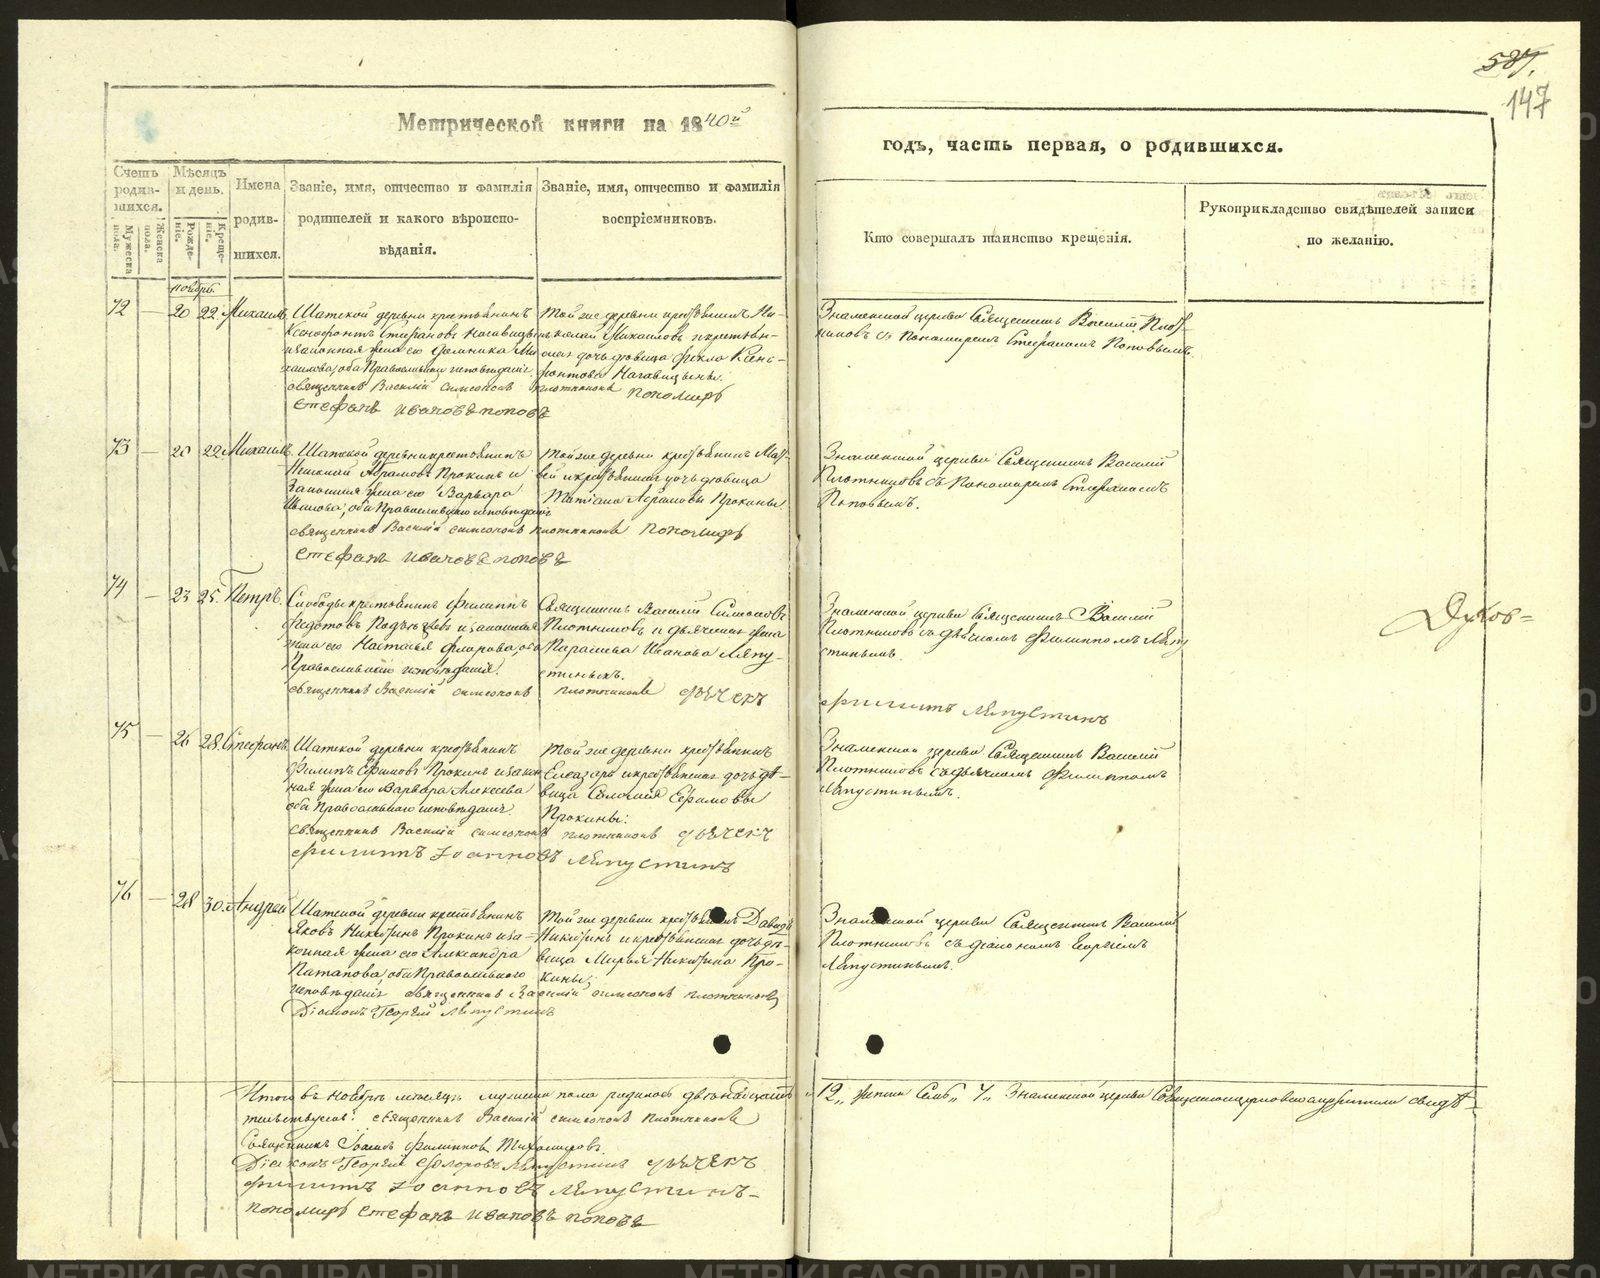 587.
147
Метрической книги на 1840й
годъ, часть первая, о родившихся.
Счетъ родив-шихся.
Мужеска пола.
Женска пола.
Мѣсяцъ и день.
Рожде-ніе.
Креще-ніе.
Имена родив-шихся.
Званіе, имя, отчество и фамилія
родителей и какого вѣроиспо-
вѣданія.
Званіе, имя, отчество и фамилія
воспріемниковъ.
Кто совершалъ таинство крещенія.
Рукоприкладство свидѣтелей записи
по желанію.
Ноябрь.
72 — 20 22 Михаилъ
Шатской деревни крестьянинъ
Ксенофонтъ Стефановъ
законная жена его Домника Ми-
хаилова, оба Православнаго исповѣданія.
священникъ Василій симеоновъ плотниковъ пономарь
стефанъ ивановъ поповъ
Той же деревни крестьянинъ Ни-
колай Михаиловъ и крестьян-
ская дочь девица Фекла Ксено-
фонтова
Знаменской церкви Священникъ Василій Плот-
никовъ съ Пономаремъ Стефаномъ Поповымъ.
73 — 20 22 Михаилъ
Шатской деревни крестьянинъ
Николай Абрамовъ Прокинъ и
Законная жена его Варвара
Иванова, оба Православнаго исповѣданія
священникъ Василій симеоновъ плотниковъ пономарь
стефанъ ивановъ поповъ
Той же деревни крестьянинъ Мат-
вей и крестьянская дочь девица
Татіана Абрамовы Прокины
Знаменской церкви Священникъ Василій
Плотниковъ съ Пономаремъ Стефаномъ
Поповымъ.
74 — 23 25. Петръ.
Слободы крестьянинъ Филиппъ
Федотовъ и законная
жена его Настасья Флорова, оба
Православнаго исповѣданія.
священникъ Василій симеоновъ плотниковъ дьячекъ
филиппъ ляпустинъ
Священникъ Василій Симеоновъ
Плотниковъ и дьяческая жена
Парасковья Иванова Ляпу-
стиныхъ.
Знаменской церкви Священникъ Василій
Плотниковъ съ дьячкомъ Филиппомъ Ляпу-
стинымъ.
Духов=
75 — 26 28. Стефанъ
Шатской деревни крестьянинъ
Филипъ Ефимовъ Прокинъ и закон-
ная жена его Варвара Алексеева
оба Православнаго исповѣданія.
священникъ Василій симеоновъ плотниковъ дьячекъ
филиппъ іоанновъ ляпустинъ
Той же деревни крестьянинъ
Елеазаръ и крестьянская дочь дѣ-
вица Соломея Ефимовы
Прокины.
Знаменской церкви Священникъ Василій
Плотниковъ съ дьячкомъ Филиппомъ
Ляпустинымъ.
76 — 28 30. Андрей
Шатской деревни крестьянинъ
Яковъ Никитинъ Прокинъ и за-
конная жена его Александра
Патапова, оба Православнаго
исповѣданія священникъ Василій симеоновъ плотниковъ
Діаконъ Георгій Ляпустинъ
Той же деревни крестьянинъ Давидъ
Никитинъ и крестьянская дочь дѣ-
вица Марья Никитина Про-
кины
Знаменской церкви Священникъ Василій
Плотниковъ съ діакономъ Георгіемъ
Ляпустинымъ.
Итого въ Ноябрѣ мѣсяцѣ мужеска пола родилось двѣнадцать „12„ женска Семь „7„ Знаменской церкви свидѣ-
тельствуютъ: священникъ Василій симеоновъ плотниковъ
Священникъ Іоаннъ Филипповъ Тихомировъ.
Діаконъ Георгій Ѳедоровъ Ляпустинъ дьячекъ
филиппъ іоанновъ ляпустинъ-
пономарь стефанъ ивановъ поповъ
METRIKI.GASO-URAL.RU